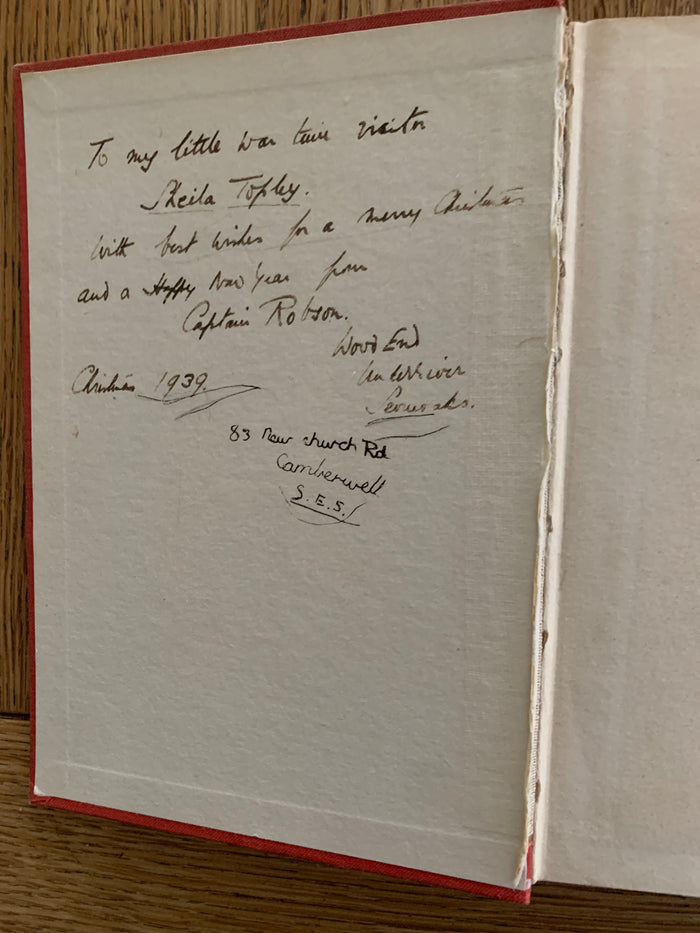 To my little war time visitor
Sheila Topley.
With best wishes for a merry Christmas
and a Happy New Year from
Captain Robson.
Wood End
Underriver
Sevenoaks.
Christmas 1939
83 New church Rd
Camberwell
S.E.5.